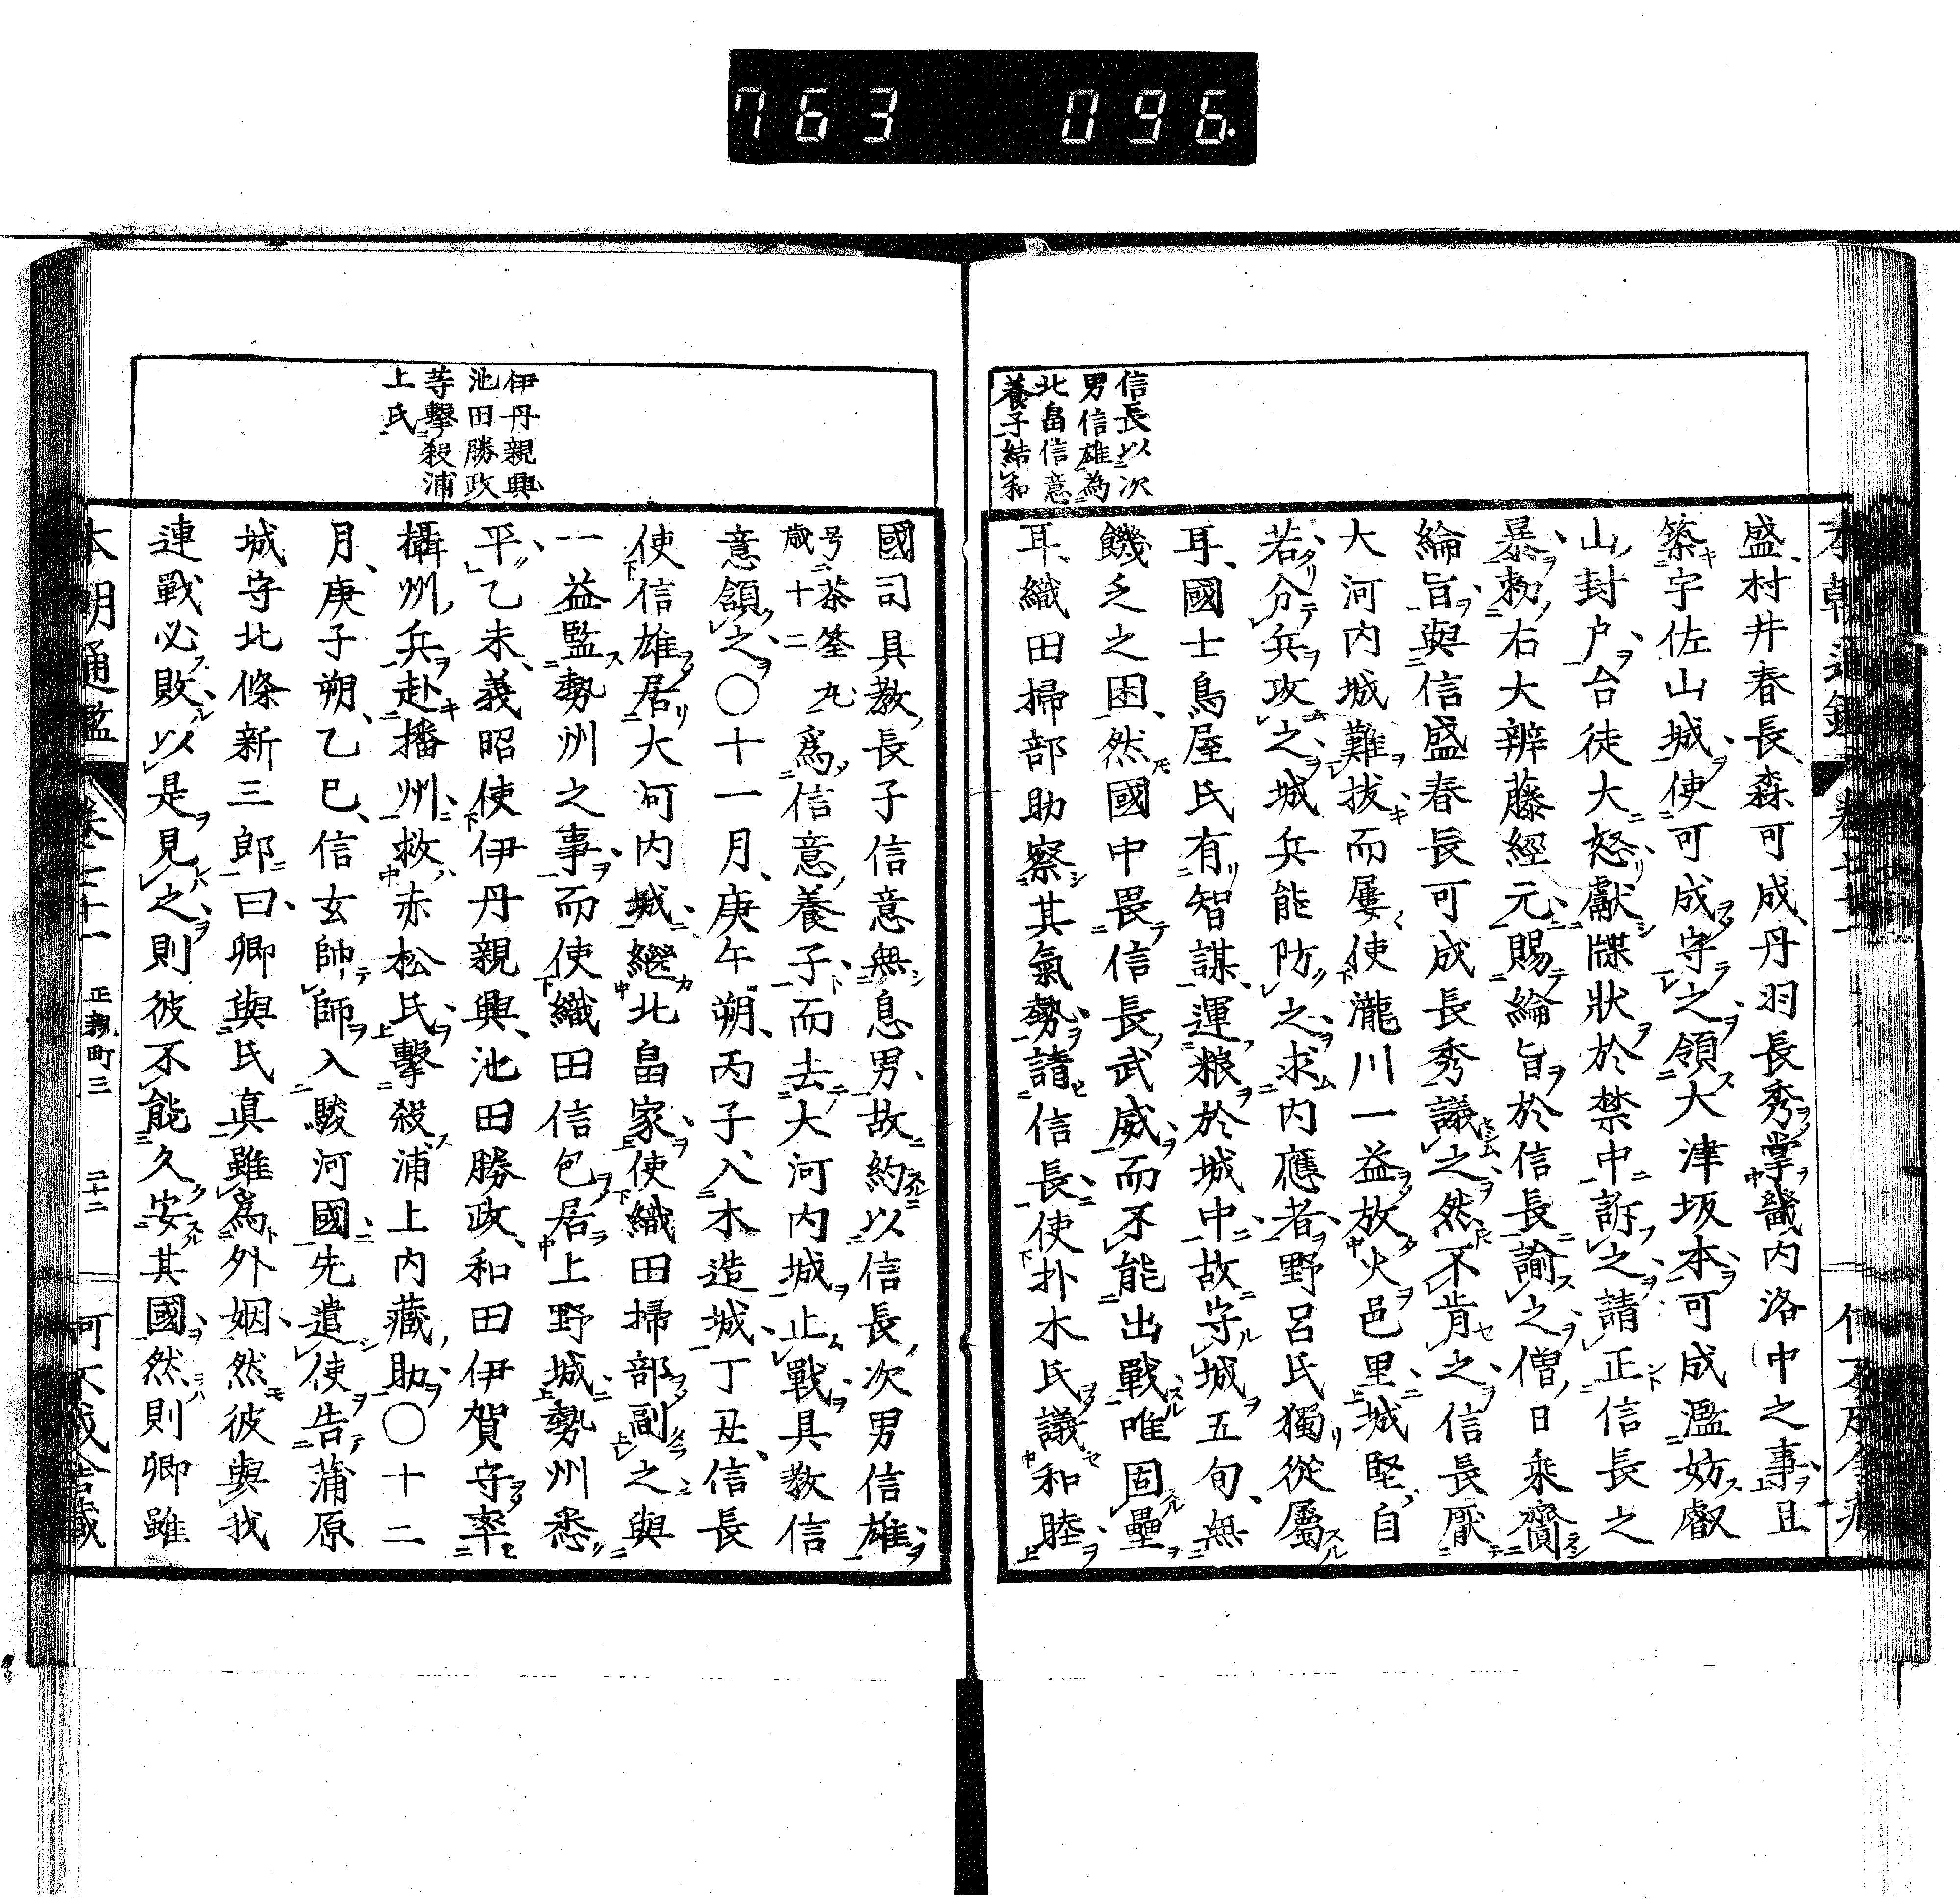 763 096
信長以次
男信雄為
北畠信意
養子結和
盛村井春長森可成丹羽長秀掌畿内洛中之事且
築宇佐山城使可成守之領大津坂本可成濫妨叡
山封戸台徒大怒獻牒狀於禁中訴之請正信長之
暴勅右大辨藤經元賜綸旨於信長諭之僧日乘齎
綸旨與信盛春長可成長秀議之然不肯之信長厭
大河内城難拔而屢使瀧川一益放火邑里城堅自
若分兵攻之城兵能防之求内應者野呂氏獨從屬
耳國士鳥屋氏有智謀運粮於城中故守城五旬無
饑乏之困然國中畏信長武威而不能出戰唯固壘
耳織田掃部助察其氣勢請信長使扑木氏議和睦
伊丹親興
池田勝政
等擊殺浦
上氏
國司具教長子信意無息男故約以信長次男信雄
号茶筌丸
歳十二
爲信意養子而去大河内城止戰具教信
意領之〇十一月庚午朔丙子入木造城丁丑信長
使信雄居大河内城繼北畠家使織田掃部副之與
一益監勢州之事而使織田信包居上野城勢州悉
平乙未義昭使伊丹親興池田勝政和田伊賀守率
攝州兵赴播州救赤松氏擊殺浦上内藏助〇十二
月庚子朔乙巳信玄帥師入駿河國先遣使告蒲原
城守北條新三郎曰卿與氏真雖爲外姻然彼與我
連戰必敗以是見之則彼不能久安其國然則卿雖
本朝通鑑
正親町三
二十二